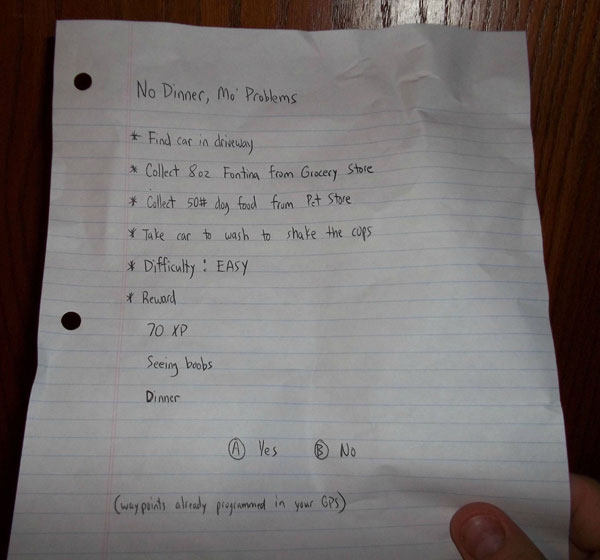 No Dinner, Mo' Problems
* Find car in driveway
* Collect 8oz Fontina from Grocery Store
* Collect 50# dog food from Pet Store
* Take car to wash to shake the cops
* Difficulty : EASY
* Reward
70 XP
Seeing boobs
Dinner
Ⓐ Yes Ⓑ No
(waypoints already programmed in your GPS)